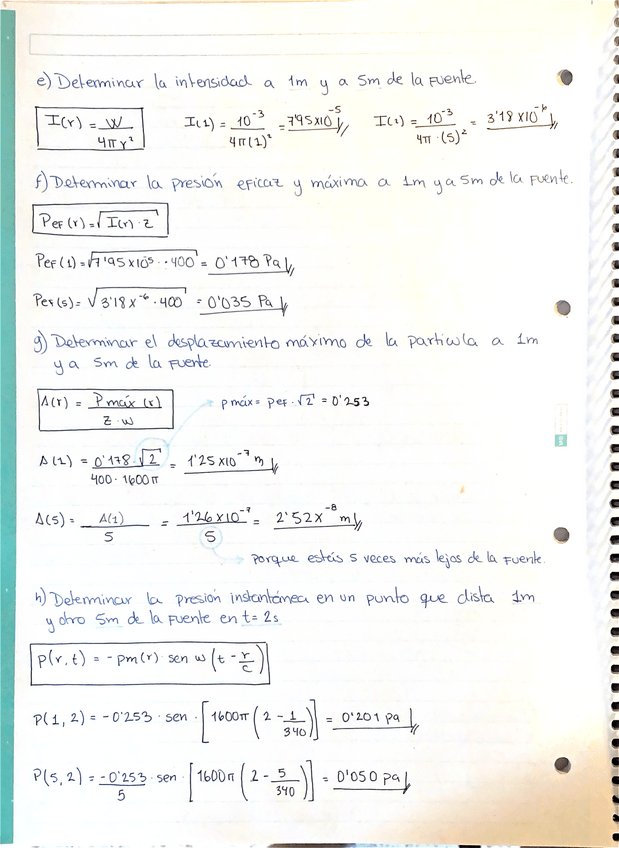 e) Determinar la intensidad a 1m y a 5m de la Fuente.
I(r) = W / 4πr² I(1) = 10⁻³ / 4π(1)² = 7'95x10⁻⁵ I(2) = 10⁻³ / 4π·(5)² = 3'18x10⁻⁶
f) Determinar la presión eficaz y máxima a 1m y a 5m de la Fuente.
PEF(r) = √I(r)·z
PEF(1) = √7'95x10⁵··400 = 0'178 Pa
PEF(5) = √3'18x⁻⁶·400 = 0'035 Pa
g) Determinar el desplazamiento máximo de la particula a 1m
y a 5m de la Fuente.
Δ(r) = Pmáx(r) / z·w p máx = pef·√2 = 0'253
Δ(1) = 0'178·√2 / 400·1600π = 1'25x10⁻⁷ m
Δ(5) = Δ(1) / 5 = 1'26x10⁻⁷ / 5 = 2'52x⁻⁸ m
porque estás 5 veces más lejos de la Fuente.
h) Determinar la presión instantánea en un punto que dista 1m
y otro 5m de la Fuente en t=2s
p(r,t) = -pm(r)·sen w(t - r/c)
P(1,2) = -0'253·sen·[1600π(2 - 1/340)] = 0'201 pa
P(5,2) = -0'253/5·sen·[1600π(2 - 5/340)] = 0'050 pa